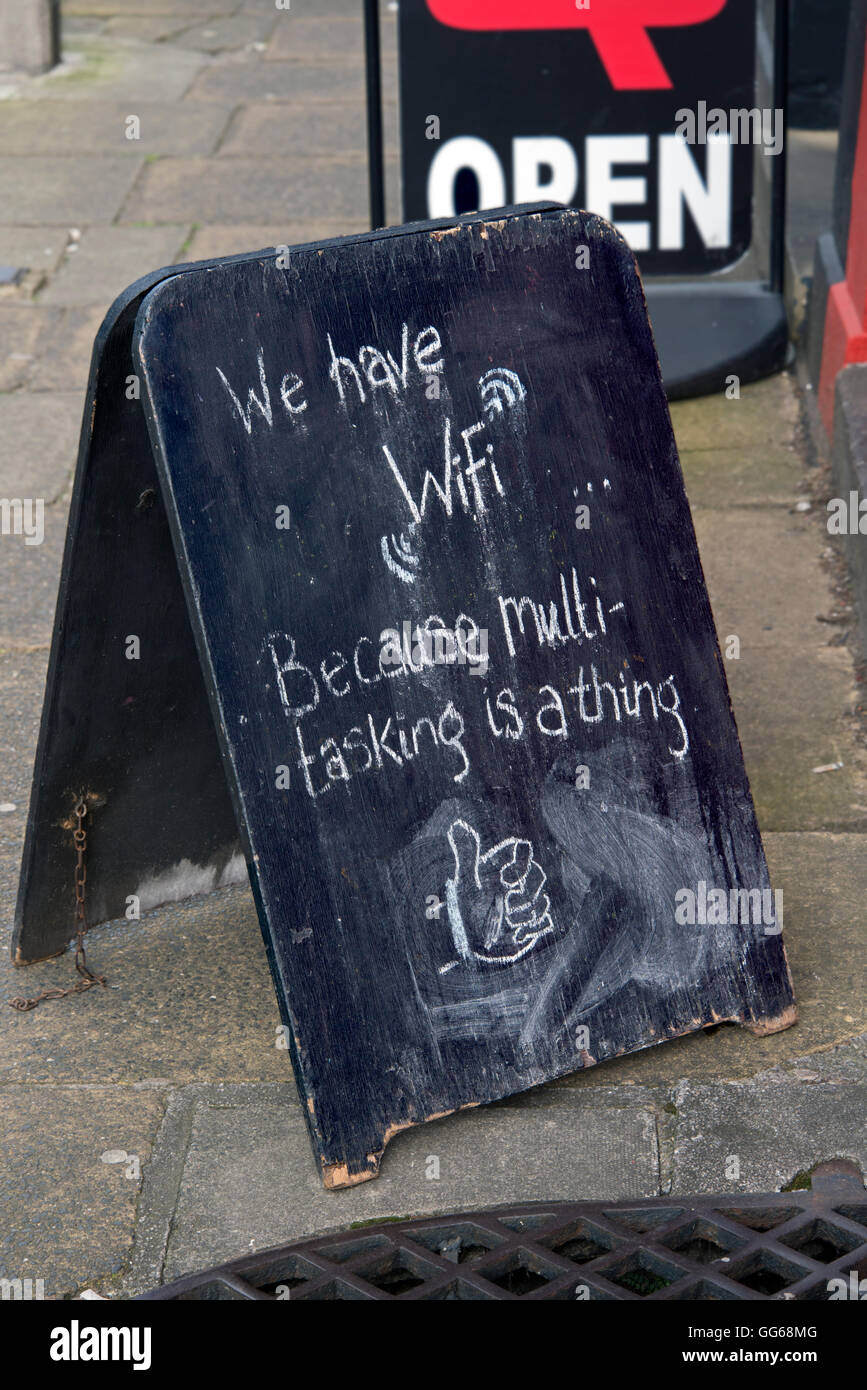 OPEN
We have
WiFi ...
Because multi-
tasking is a thing
alamy
Image ID: GG68MG
www.alamy.com